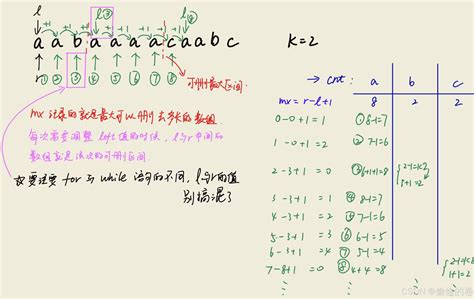 l l② l④
+1 +1 +1 +1 +1 +1 +1
a a b a a a a a c a a b c K=2
r ① ② ③ ④ ⑤ ⑥ ⑦ ⑧
可删最大区间
→ cnt: a b c
mx = r-l+1 8 2 2
mx 记录的就是最大可以删去多长的数组
0-0+1 = 1 ①8-1=7
每次需要调整 left 值的时候,l与r中间的
数组就是该次的可删区间.
1-0+1 = 2 ②7-1=6
2-3+1 = 0 ③6+1+1=8 2-1=1<K
1+1=2
故要注意 for 与 while 语句的不同,l与r的值
别搞混了
3-3+1 = 1 ④8-1=7
4-3+1 = 2 ⑤7-1=6
5-3+1 = 3 ⑥6-1=5
6-3+1 = 4 ⑦5-1=4
7-8+1 = 0 ⑧4+4=8 2-1=1<K
1+1=2